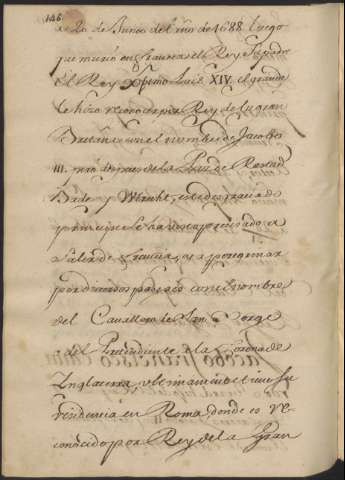 146
a 20 de Junio del año de 1688. luego
que murió en Francia el Rey
el Rey Xpmo Luis XIV. el grande
le hizo reconocer por Rey de la gran
Bretaña con el nombre de Jacobo
III. pero despues de la Paz de Rastad
Bade y Utrecht, este desgraciado
principe se ha visto precisado a
salir de Francia, y a peregrinar
por diversos Paises con el nombre
del Cavallero de San Jorge
del Pretendiente a la Corona de
Inglaterra, ultimamente tiene su
residencia en Roma donde es re
conocido por Rey de la Gran